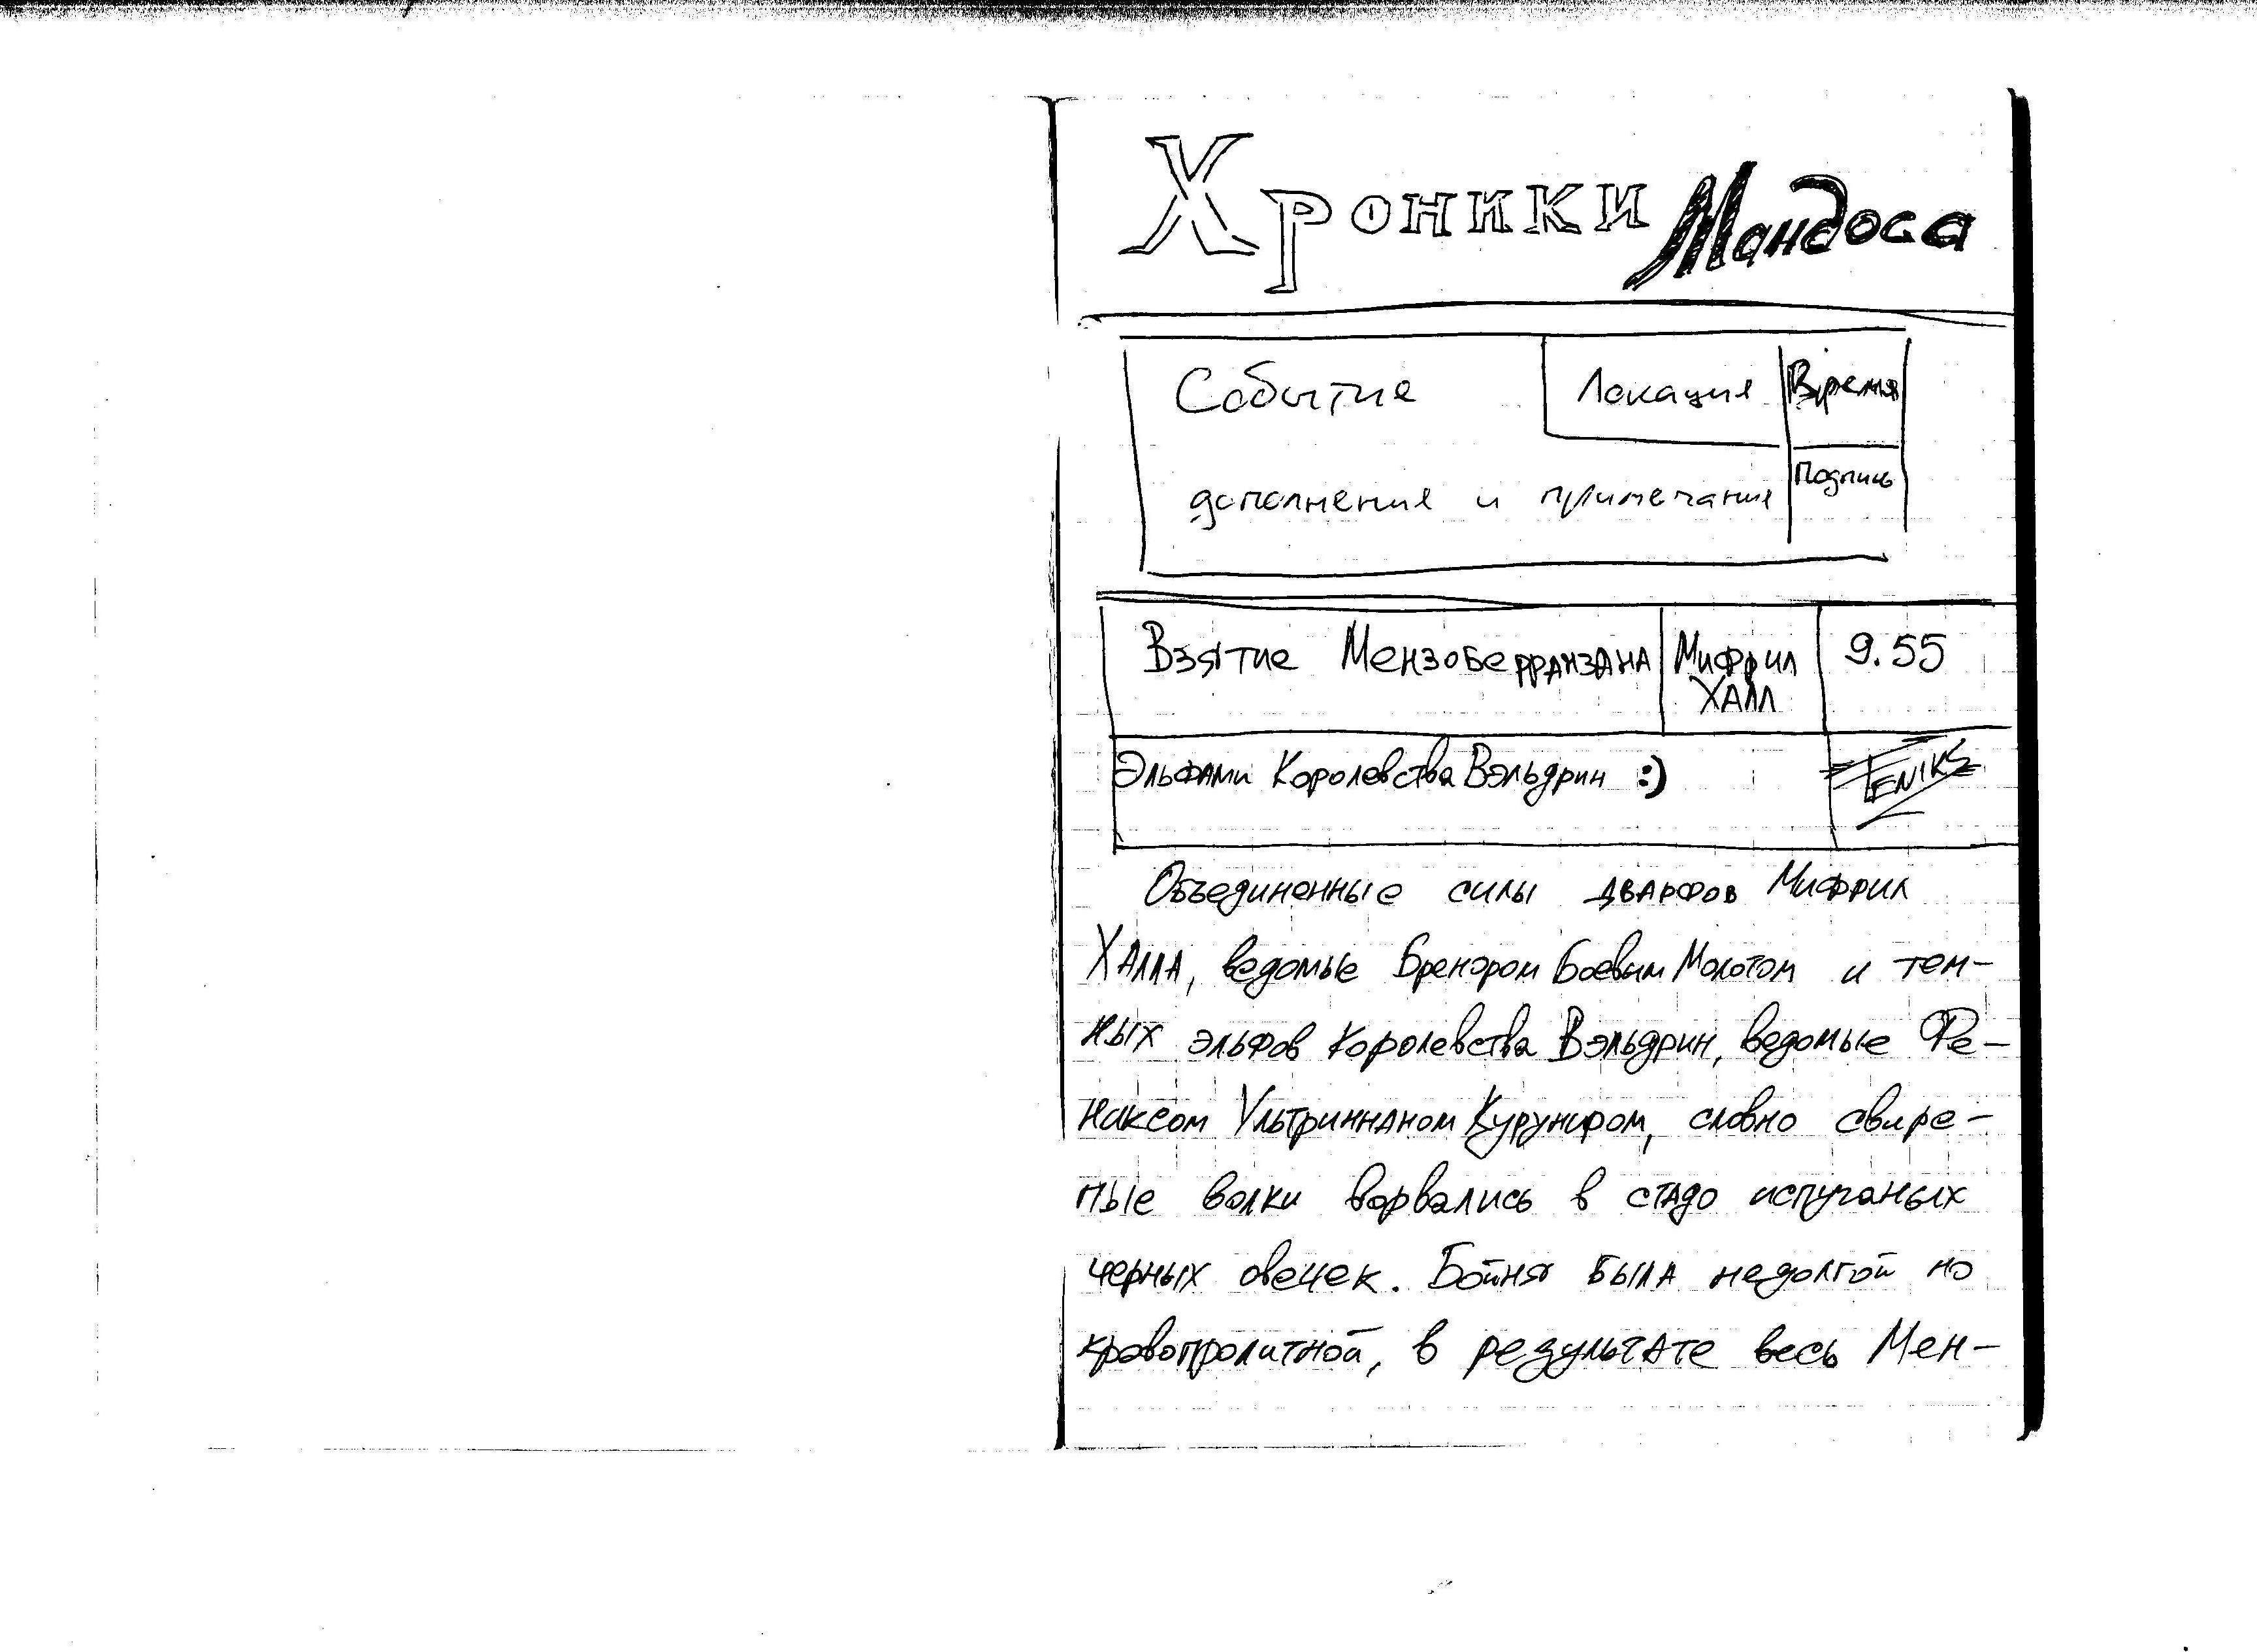 Хроники Мандоса
Событие Локация Время
дополнения и примечания Подпись
Взятие Мензоберранзана Мифрил Халл 9.55
Эльфами Королевства Вэльдрин :) FENIKS
Объединенные силы дварфов Мифрил
Халла, ведомые Бренором Боевым Молотом и тем-
ных эльфов Королевства Вэльдрин, ведомые Фе-
никсом Ультриннаном Куруниром, словно свире-
пые волки ворвались в стадо испуганых
черных овечек. Бойня была недолгой но
кровопролитной, в результате весь Мен-